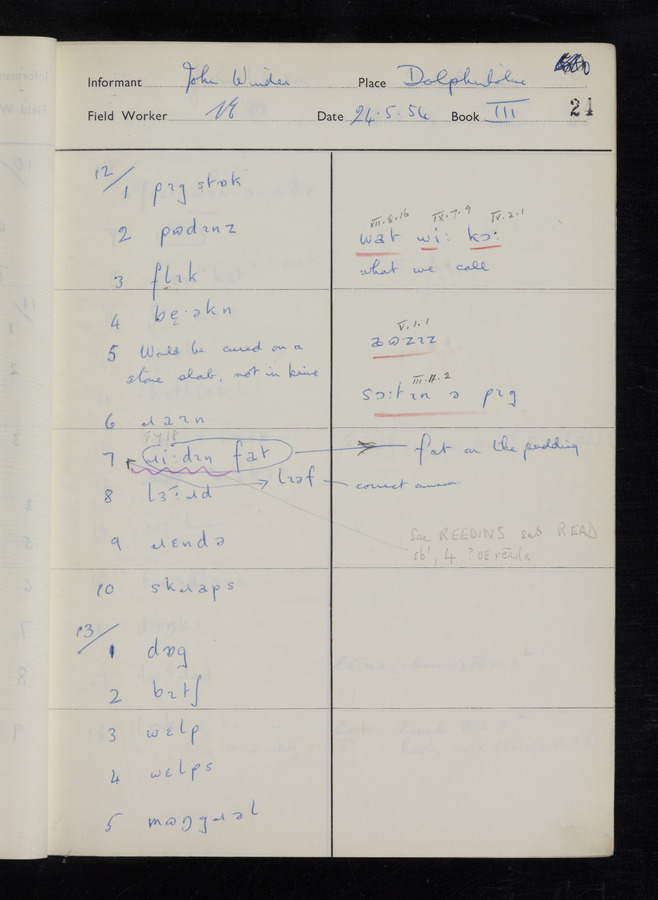 Informant John Winder Place Dolphinholme
Field Worker Date 24.5.54 Book III 21
12/1 pɪg stɒk
2 pʊdɪnz
VII.8.16 IX.7.9 IV.2.1
wat wi: kɔ:
what we call
3 flɪk
4 be·əkn
V.1.1
5 Would be cured on a
stone slab, not in brine
III.11.2
sɔ:tɪn ə pɪg
6 ɹaɪn
7 ɹi:dɪn fat fat on the pudding
lɪəf correct
8 lɜ:ɹd
9 ɹɛndə
See REEDINS sub READ
sb¹, 4 ? OE rēada
10 skɹaps
13/1 dɒg
2 bɪtʃ
3 wɛlp
4 wɛlps
5 mʊŋgɹəl